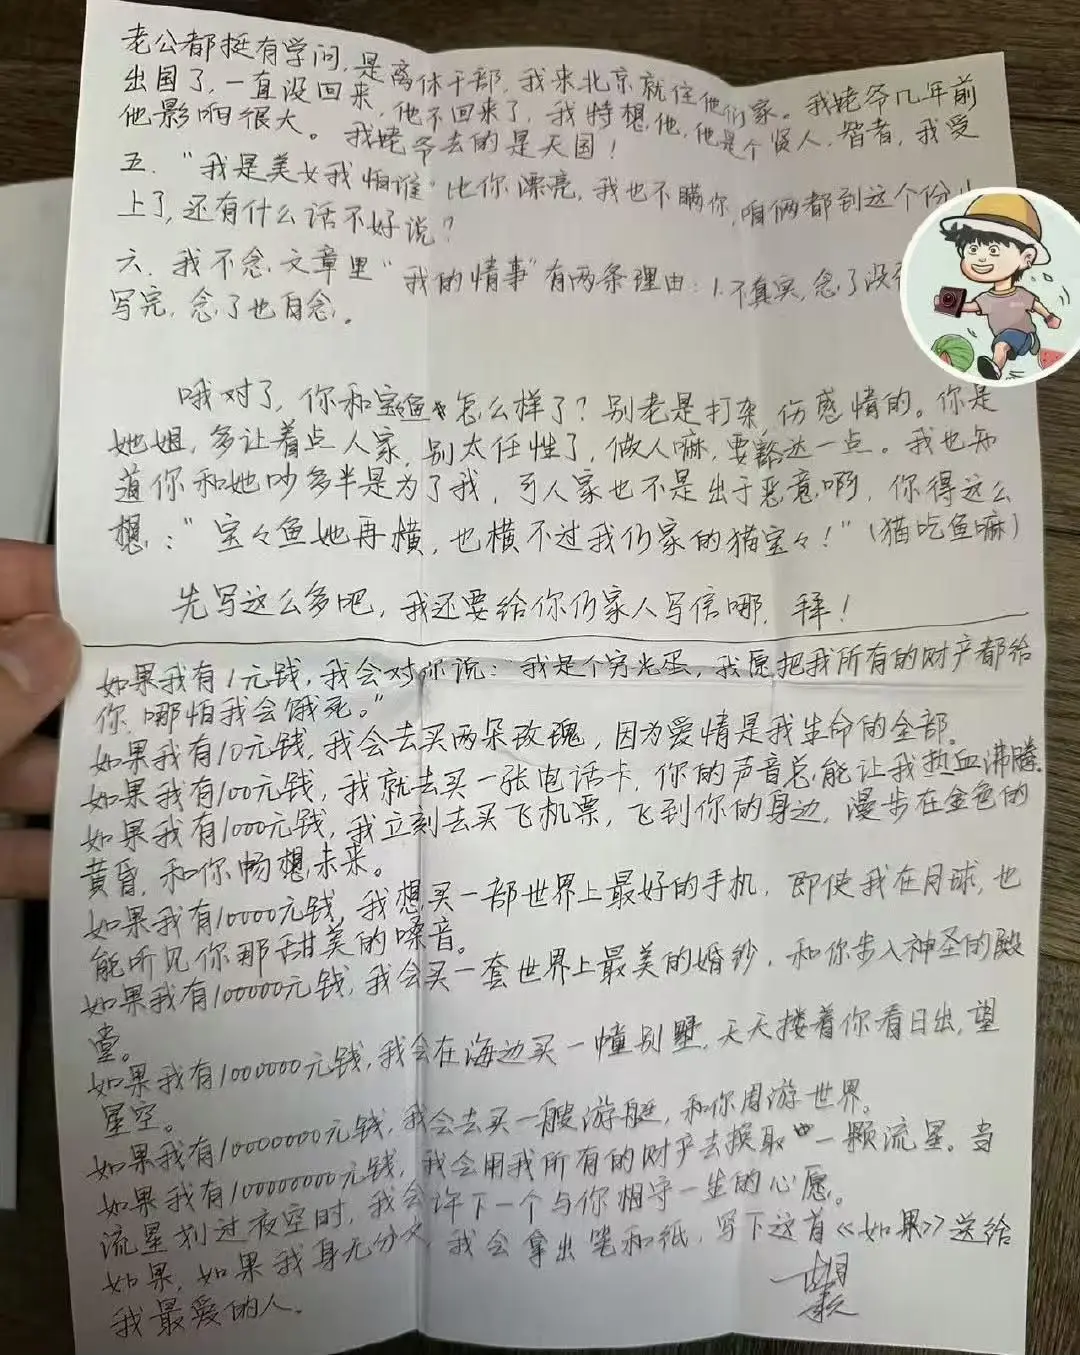 老公都挺有学问,是离休干部,我来北京就住他们家。我姥爷几年前
出国了,一直没回来,他不回来了,我特想他,他是个贤人、智者,我受
他影响很大。我姥爷去的是天国!
五."我是美女我怕谁"比你漂亮,我也不瞒你,咱俩都到这个份
上了,还有什么话不好说?
六.我不念文章里"我的情事"有两条理由:1.不真实,念了没
写完,念了也白念。
哦对了,你和宝鱼怎么样了?别老是打杂,伤感情的。你是
她姐,多让着点人家,别太任性了,做人嘛,要豁达一点。我也知
道你和她吵多半是为了我,可人家也不是出于恶意啊,你得这么
想:"宝々鱼她再横,也横不过我们家的猫宝々!"(猫吃鱼嘛)
先写这么多吧,我还要给你们家人写信哪,拜!
如果我有1元钱,我会对你说:"我是个穷光蛋,我愿把我所有的财产都给
你,哪怕我会饿死。"
如果我有10元钱,我会去买两朵玫瑰,因为爱情是我生命的全部。
如果我有100元钱,我就去买一张电话卡,你的声音总能让我热血沸腾。
如果我有1000元钱,我立刻去买飞机票,飞到你的身边,漫步在金色的
黄昏,和你畅想未来。
如果我有10000元钱,我想买一部世界上最好的手机,即使我在月球,也
能听见你那甜美的嗓音。
如果我有100000元钱,我会买一套世界上最美的婚钞,和你步入神圣的殿
堂。
如果我有1000000元钱,我会在海边买一幢别墅,天天搂着你看日出,望
星空。
如果我有10000000元钱,我会去买一艘游艇,和你周游世界。
如果我有100000000元钱,我会用我所有的财产去换取一颗流星。当
流星划过夜空时,我会许下一个与你相守一生的心愿。
如果,如果我身无分文,我会拿出笔和纸,写下这首《如果》送给
我最爱的人。